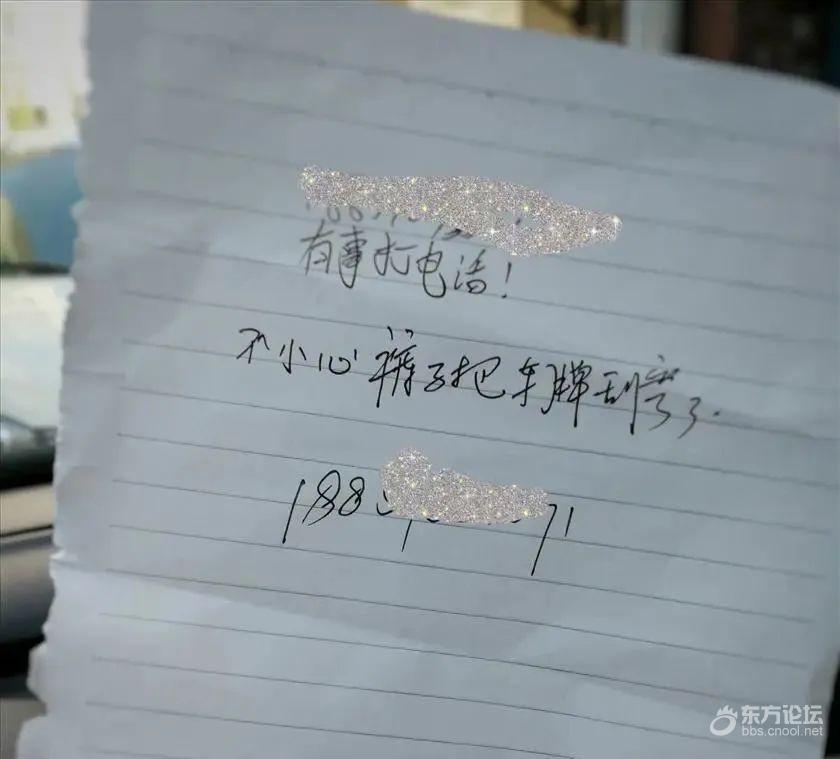 有事打电话！
不小心裤子把车牌刮弯了.
188
71
东方论坛
bbs.cnool.net